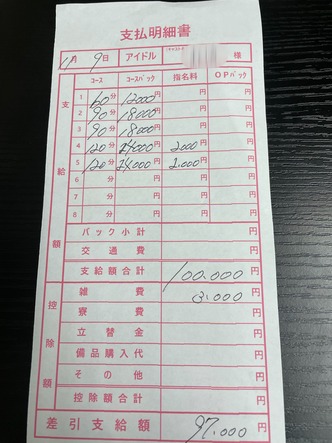 支払明細書
11月 9日 アイドル 様
コース コースバック 指名料 OPバック
支給額
1 60分 12000円 円 円
2 90分 18000円 円 円
3 90分 18000円 円 円
4 120分 24000円 2000円 円
5 120分 24,000円 2,000円 円
6 分 円 円 円
7 分 円 円 円
8 分 円 円 円
バック小計 円
交通費 円
支給額合計 100.000円
控除額
雑費 3,000円
寮費 円
立替金 円
備品購入代 円
その他 円
控除額合計 円
差引支給額 97.000円